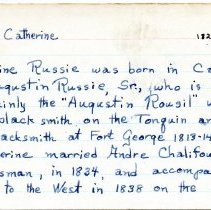 Catherine 182
ine Russie was born in Ca
ugustin Russie, Sr., who is
inly the "Augustin Rousil" w
blacksmith on the Tonquin an
acksmith at Fort George 1813-14
erine married Andre Chalifou
sman, in 1834, and accompa
to the West in 1838 on the